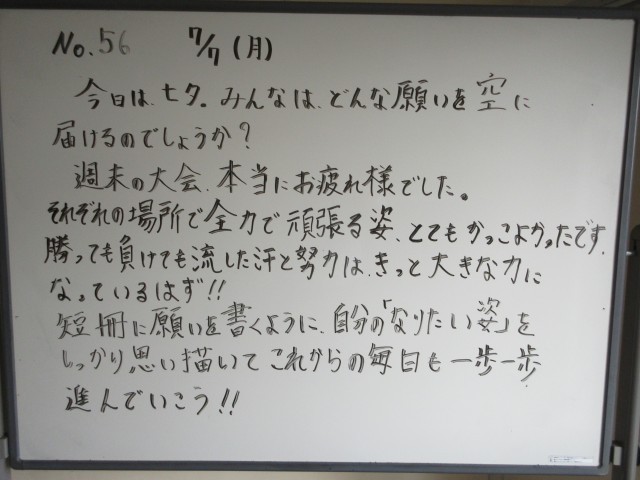 No.56 7/7(月)
今日は、七夕。みんなは、どんな願いを空に
届けるのでしょうか？
週末の大会、本当にお疲れ様でした。
それぞれの場所で全力で頑張る姿、とてもかっこよかったです。
勝っても負けても流した汗と努力は、きっと大きな力に
なっているはず!!
短冊に願いを書くように、自分の「なりたい姿」を
しっかり思い描いてこれからの毎日も一歩一歩
進んでいこう!!